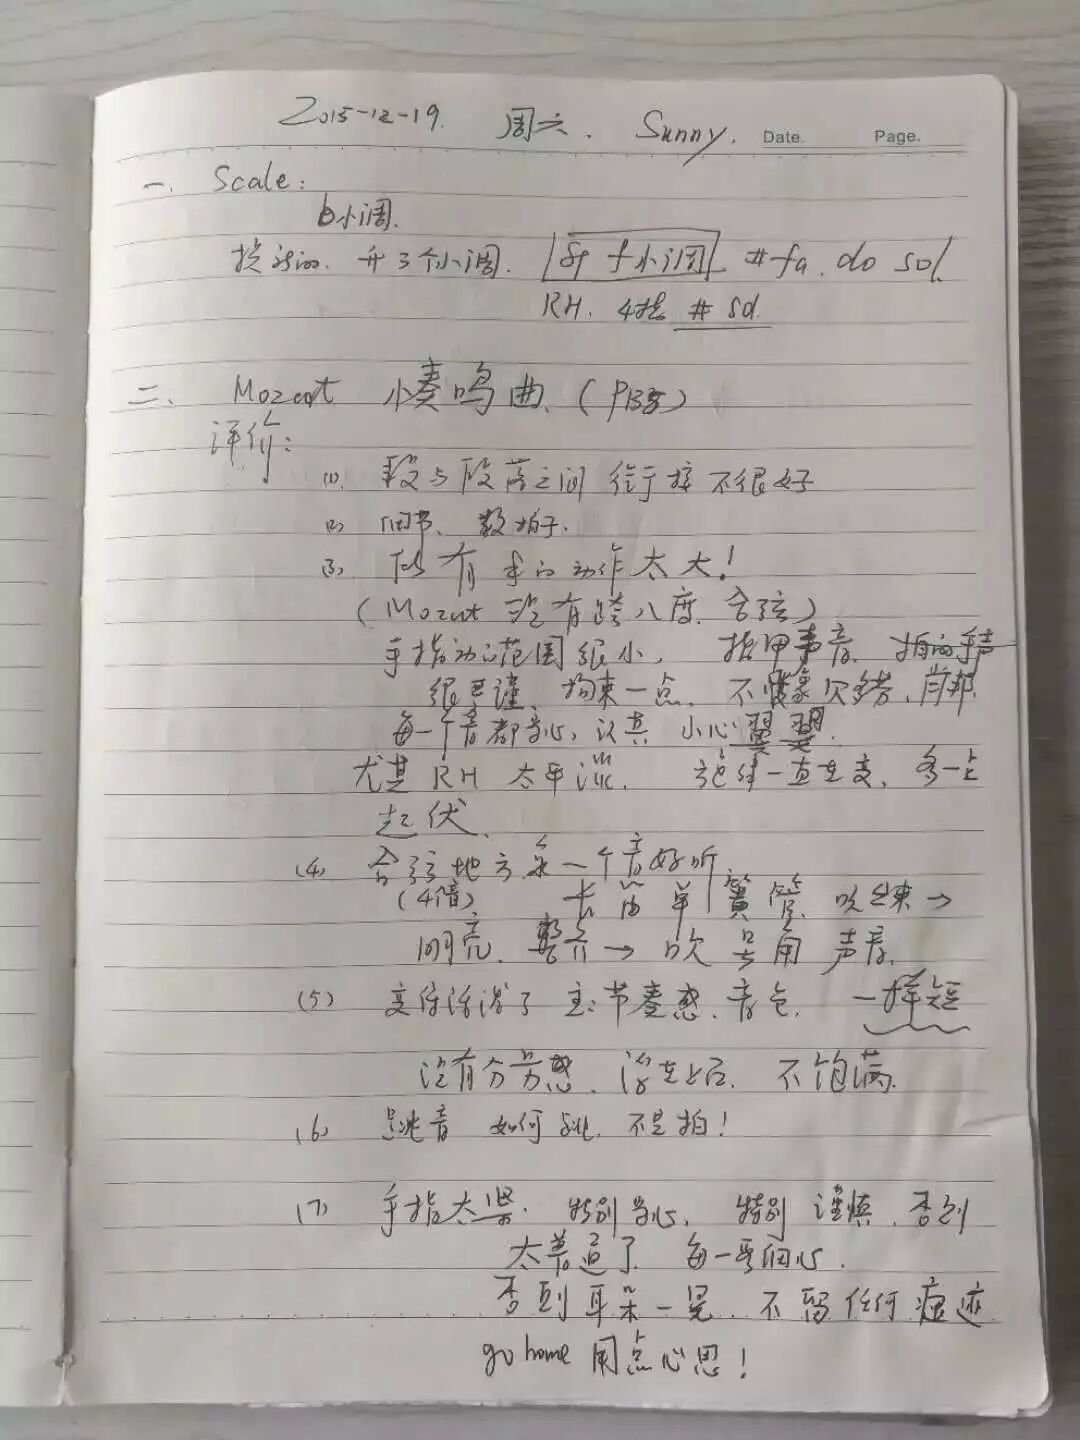 2015-12-19. 周六. Sunny. Date. Page.
一、Scale:
b小调.
升3个小调. 升f小调 #fa. do sol.
RH. 4指 # sol.
二、Mozart 小奏鸣曲、(P13)
评价:
(1). 段与段落之间 衔接 不很好
(2) 细节、数拍子.
(3) 所有 手的动作太大!
(Mozart 没有跨八度、合弦)
手指动的范围很小, 指甲声音.
很严谨、拘束一点. 不像贝多芬、肖邦.
每一个音都专心, 认真 小心翼翼.
尤其 RH 太平淡. 旋律一直在变、多一点
起伏.
(4) 合弦地方.第一个音好听
(4倍) 长笛 单簧管. 吹结束→
明亮、 →吹号角 声音.
(5) 变得活泼了 主:节奏感、音色. 一样短
没有 感. 不饱满.
(6) 跳音 如何跳. 不是拍!
(7) 手指太坚. 特别专心, 特别 谨慎. 否则
太普通了. 每一 细心.
否则耳朵一晃. 不留任何痕迹
go home 用点心思!